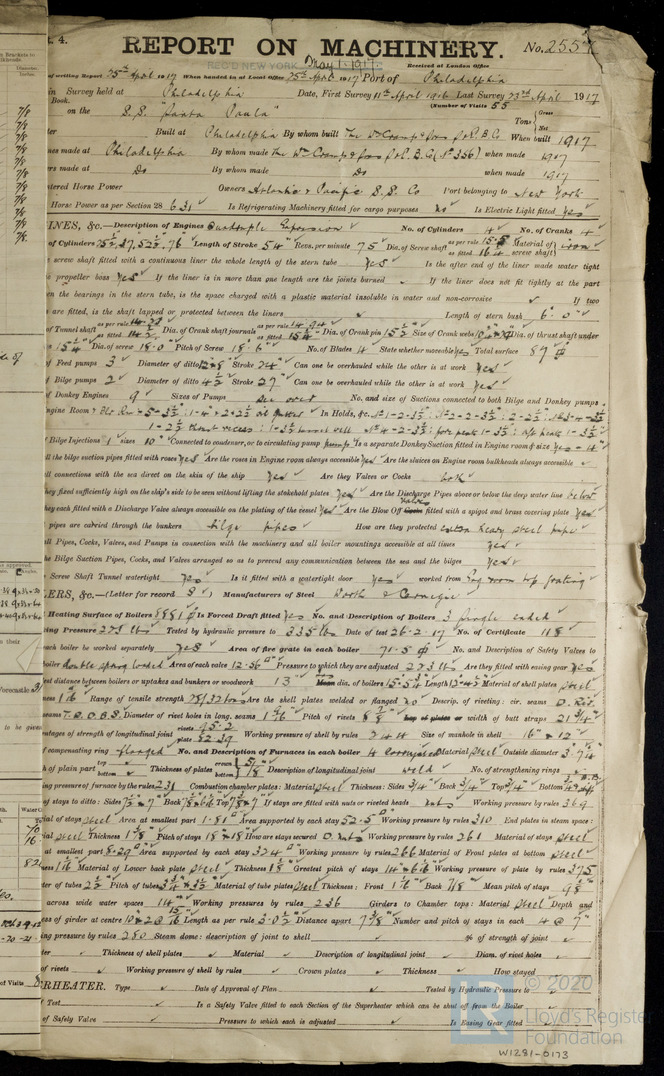 t. 4.
REPORT ON MACHINERY. No. 2557
REC'D NEW YORK May 1 1917 Received at London Office
of writing Report 25th April 1917 When handed in at Local Office 25th April 1917 Port of Philadelphia
in Survey held at Philadelphia Date, First Survey 11th April 1916 Last Survey 23rd April 1917
Book. (Number of Visits 55
on the S.S. "Santa Paula" Tons Gross Net
Built at Philadelphia By whom built The Wm Cramp & Sons S & E. B. Co When built 1917
nes made at Philadelphia By whom made The Wm Cramp & Sons S & E. B. Co (No 356) when made 1917
rs made at Do By whom made Do when made 1917
tered Horse Power Owners Atlantic & Pacific S.S. Co Port belonging to New York
Horse Power as per Section 28 631 Is Refrigerating Machinery fitted for cargo purposes no Is Electric Light fitted yes
INES, &c.—Description of Engines Quadruple Expansion No. of Cylinders 4 No. of Cranks 4
of Cylinders Length of Stroke 54 Revs. per minute 75 Dia. of Screw shaft as per rule 15.5 as fitted 16.4 Material of screw shaft iron
e screw shaft fitted with a continuous liner the whole length of the stern tube yes Is the after end of the liner made water tight
e propeller boss yes If the liner is in more than one length are the joints burned If the liner does not fit tightly at the part
en the bearings in the stern tube, is the space charged with a plastic material insoluble in water and non-corrosive If two
are fitted, is the shaft lapped or protected between the liners Length of stern bush 6'-0"
of Tunnel shaft as per rule as fitted Dia. of Crank shaft journals as per rule as fitted Dia. of Crank pin 15½ Size of Crank webs Dia. of thrust shaft under
15¼ Dia. of screw 18-0 Pitch of Screw 18'-6" No. of Blades 4 State whether moveable yes Total surface 87
of Feed pumps 3 Diameter of ditto Stroke 24 Can one be overhauled while the other is at work yes
of Bilge pumps 2 Diameter of ditto 4½ Stroke 27" Can one be overhauled while the other is at work yes
of Donkey Engines 9 Sizes of Pumps see over No. and size of Suctions connected to both Bilge and Donkey pumps
ngine Room In Holds, &c.
f Bilge Injections 1 sizes 10" Connected to condenser, or to circulating pump pump Is a separate Donkey Suction fitted in Engine room & size yes - 14"
ll the bilge suction pipes fitted with roses yes Are the roses in Engine room always accessible yes Are the sluices on Engine room bulkheads always accessible
ll connections with the sea direct on the skin of the ship yes Are they Valves or Cocks both
hey fixed sufficiently high on the ship's side to be seen without lifting the stokehold plates yes Are the Discharge Pipes above or below the deep water line below
they each fitted with a Discharge Valve always accessible on the plating of the vessel yes Are the Blow Off Cocks valves fitted with a spigot and brass covering plate yes
pipes are carried through the bunkers bilge pipes How are they protected extra heavy steel pipe
ll Pipes, Cocks, Valves, and Pumps in connection with the machinery and all boiler mountings accessible at all times yes
he Bilge Suction Pipes, Cocks, and Valves arranged so as to prevent any communication between the sea and the bilges yes
Screw Shaft Tunnel watertight yes Is it fitted with a watertight door yes worked from Eng room top grating
ERS, &c.—(Letter for record S) Manufacturers of Steel Worth & Carnegie
Heating Surface of Boilers 8881 Is Forced Draft fitted yes No. and Description of Boilers 3 Single ended
ing Pressure 223 lbs Tested by hydraulic pressure to 335 lbs Date of test 26-2-17 No. of Certificate 118
each boiler be worked separately yes Area of fire grate in each boiler 71.5 No. and Description of Safety Valves to
boiler double spring loaded Area of each valve 12.56 Pressure to which they are adjusted 223 lbs Are they fitted with easing gear yes
est distance between boilers or uptakes and bunkers or woodwork 13" dia. of boilers 15-5¾ Length Material of shell plates steel
ness Range of tensile strength 28/32 tons Are the shell plates welded or flanged no Descrip. of riveting: cir. seams D. Riv.
seams T.R.D.B.S. Diameter of rivet holes in long. seams Pitch of rivets Lap of plates or width of butt straps 21¾"
entages of strength of longitudinal joint rivets 95.2 plate 82.39 Working pressure of shell by rules 244 Size of manhole in shell 16" × 12"
f compensating ring flanged No. and Description of Furnaces in each boiler 4 Corrugated Material steel Outside diameter
h of plain part top bottom Thickness of plates crown bottom Description of longitudinal joint weld No. of strengthening rings
ing pressure of furnace by the rules 231 Combustion chamber plates: Material steel Thickness: Sides ¾" Back ¾" Top ¾" Bottom
of stays to ditto: Sides Back Top If stays are fitted with nuts or riveted heads nuts Working pressure by rules 369
al of stays steel Area at smallest part 1.81 Area supported by each stay 52.5 Working pressure by rules 310 End plates in steam space:
ial steel Thickness Pitch of stays 18×18 How are stays secured D. nuts Working pressure by rules 261 Material of stays steel
at smallest part 8.29 Area supported by each stay 324 Working pressure by rules 266 Material of Front plates at bottom steel
ness Material of Lower back plate steel Thickness Greatest pitch of stays Working pressure of plate by rules 375
ter of tubes 2½ Pitch of tubes Material of tube plates steel Thickness: Front Back 7/8 Mean pitch of stays
across wide water spaces 14" Working pressures by rules 236 Girders to Chamber tops: Material steel Depth and
ess of girder at centre Length as per rule Distance apart Number and pitch of stays in each 4 @ 7"
ing pressure by rules 280 Steam dome: description of joint to shell % of strength of joint
ter Thickness of shell plates Material Description of longitudinal joint Diam. of rivet holes
of rivets Working pressure of shell by rules Crown plates Thickness How stayed
ERHEATER. Type Date of Approval of Plan Tested by Hydraulic Pressure to
f Test Is a Safety Valve fitted to each Section of the Superheater which can be shut off from the Boiler
of Safety Valve Pressure to which each is adjusted Is Easing Gear fitted
© 2020
Lloyd's Register
Foundation
W1281-0173